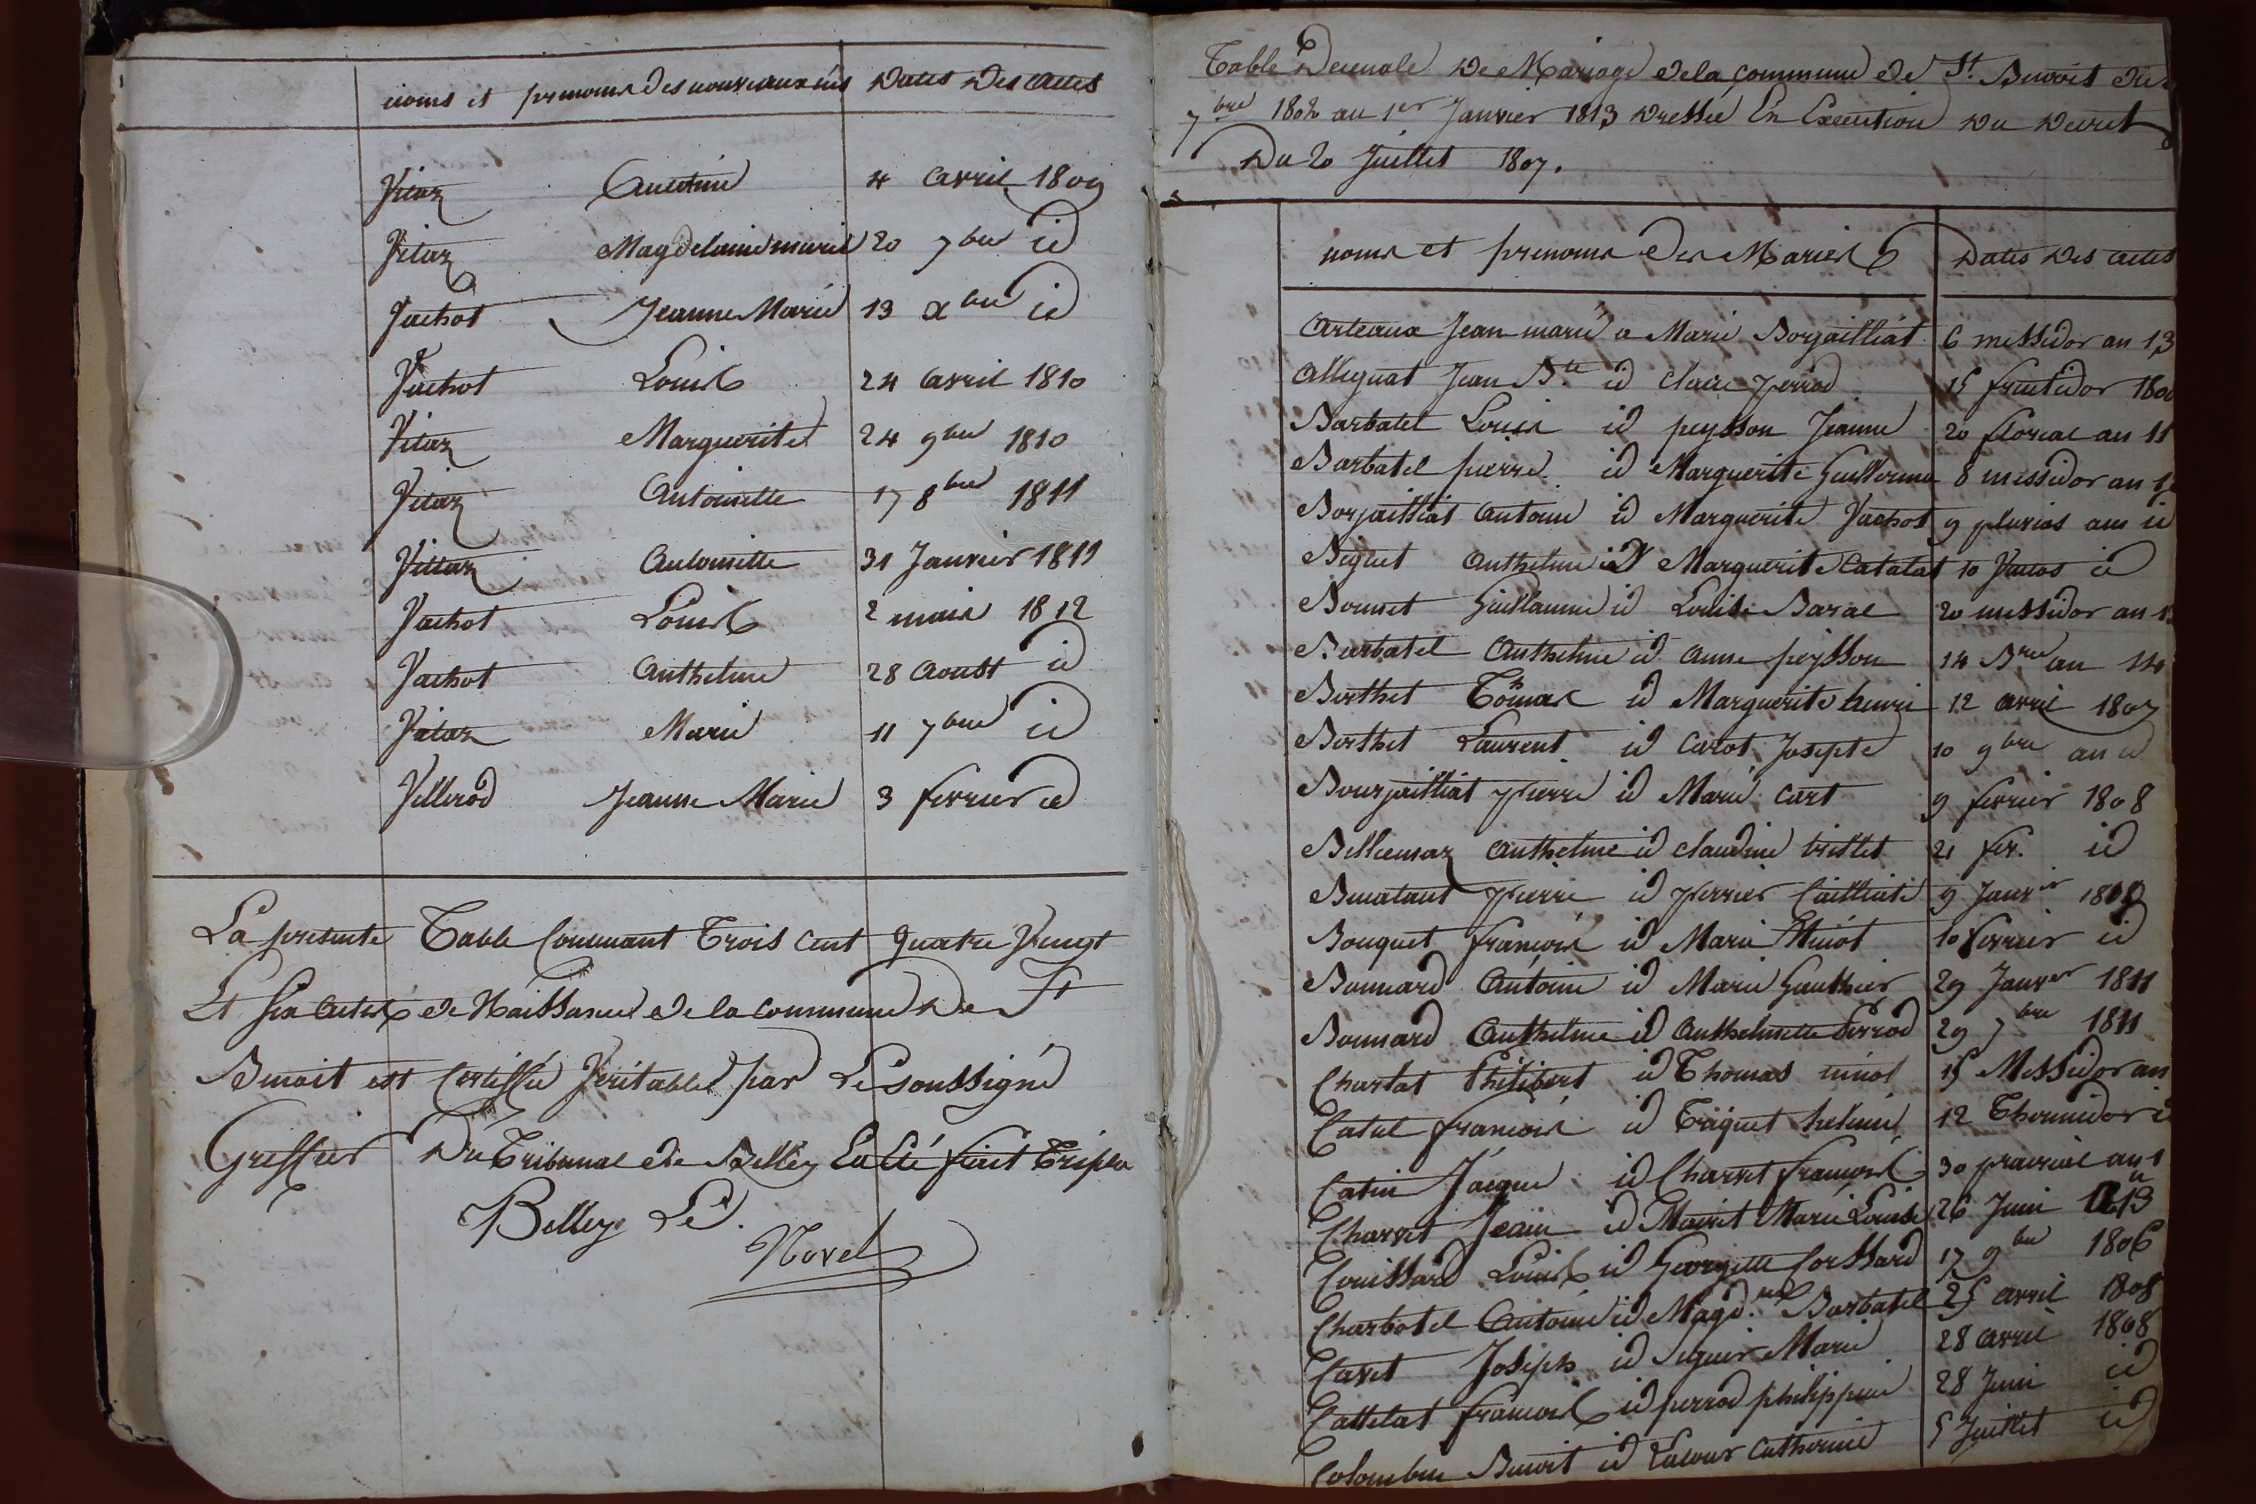 noms et prenoms des nouveaux nés Dates Des actes
Vitaz Anthelme 4 avril 1809
Vitaz Magdelaine marie 20 7bre id
Vachot Jeanne Marie 13 xbre id
Vachot Louis 24 avril 1810
Vitaz Marguerite 24 9bre 1810
Vitaz Antoinette 17 8bre 1811
Vittaz Antoinette 31 Janvier 1811
Vachot Louis 2 mais 1812
Vachot Anthelme 28 aoust id
Vitaz Marie 11 7bre id
Villerod Jeanne Marie 3 fevrier id
La presente Table Contenant Trois cent quatre Vingt
Et Six actes de Naissance de la commune De St
Benoit est Certiffié Veritable par Le soussigné
Greffier Du Tribunal de Belley fait Triple
Belley Le
Novel
Table Decenale De Mariage de la commune de St. Benoit du
7bre 1802 au 1er Janvier 1813 Dressée En Execution Du Decret
Du 20 Juillet 1807.
noms et prenoms des Mariés Dates Des actes
Arteaux Jean marie a Marie Borjailliat 6 messidor an 13
Allegnat Jean Bte id Claire perrod 15 fructidor
Barbatel Louis id peysson Jeanne 20 floreal an 11
Barbatel pierre id Marguerite Guillerme 8 messidor an
Borjailliat antoine id Marguerite Vachot 9 pluvios ans id
Biguet Anthelme id Marguerite Catalat 10 Vantos id
Bonnet Guillaume id Louise Baral 20 messidor an
Barbatel Anthelme id anne peysson 14 Bre an 14
Berthet Tomas id Marguerite henri 12 avril 1807
Berthet Laurent id Carot Josepte 10 9bre an id
Bourjailliat pierre id Marie Cart 9 fevrier 1808
Billiemaz anthelme id claudine brillet 21 fer. id
Benatant pierre id perrier 9 Janvier
Bouquet françois id Marie Miniot 10 fevrier id
Bonnard Antoine id Marie Gauthier 29 Janver 1811
Bonnard Anthelme id Anthelmette Perrod 29 7bre 1811
Charlat Philibert id Thomas miniot 15 Messidor an
Catal françois id Triquet heleine 12 Thermidor
Catin Jacque id Charvet françoise 30 prairial an
Charvet Jean id Mairit Marie Louise 26 Juin
Couissard Louis id Georgette Corssard 17 9bre 1806
Charbotel Antoine id Magd.ne Barbatel 25 avril 1808
Cavet Joseph id Marie 28 avril 1808
Cattelat françois id perrod philippine 28 Juin id
Colombin Benoit id Latour Catherine 5 Juillet id